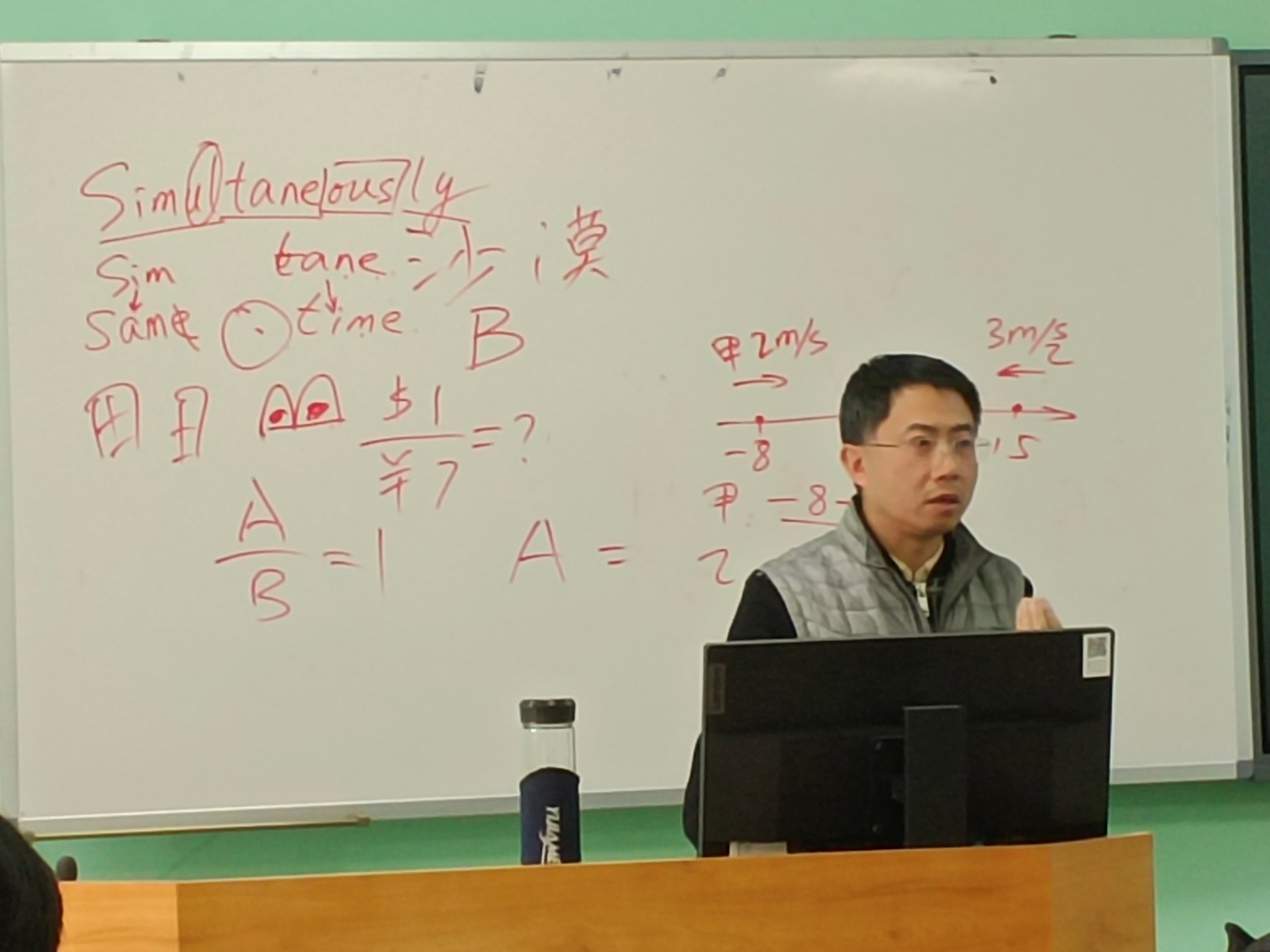 Simultaneously
Sim tane = 沙漠
same time B
$1
¥7
= ?
A
B
= 1
A =
甲 2m/s
3m/s
2
-8
15
甲: -8-
2